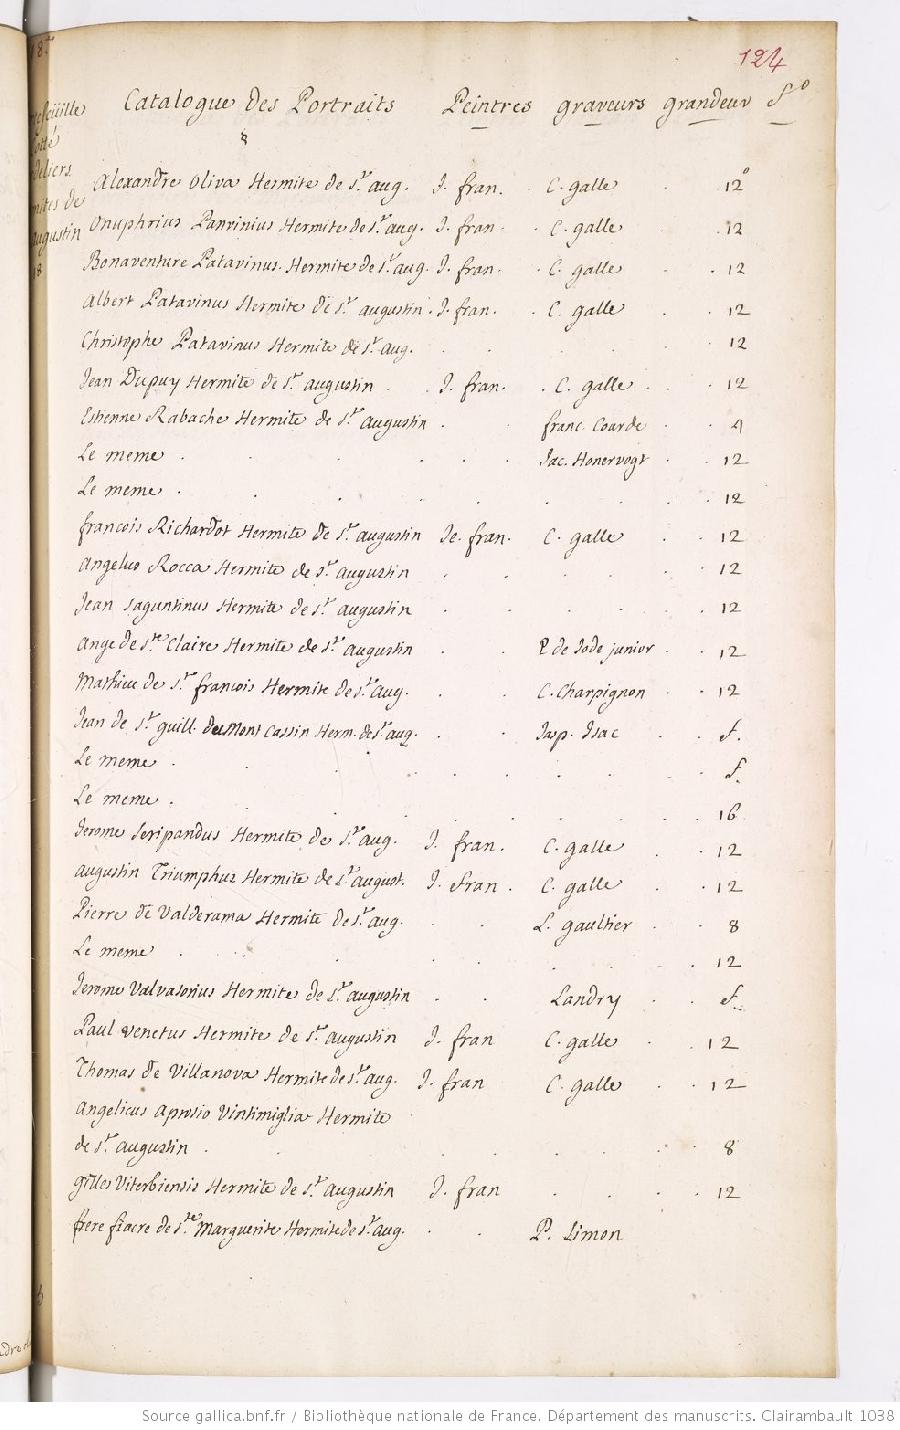 124
Catalogue des Portraits Peintres graveurs grandeur fo
Alexandre Oliva Hermite de St aug. J. fran. C. galle 12o
Onuphrius Panvinius Hermite de St aug. J. fran. C. galle 12
Bonaventure Patavinus Hermite de St aug. J. fran. C. galle 12
Albert Patavinus Hermite de St augustin. J. fran. C. galle 12
Christophe Patavinus Hermite de St aug. 12
Jean Dupuy Hermite de St augustin J. fran. C. galle 12
Estienne Rabache Hermite de St augustin franc. Courde 4
Le meme Jac. Honervogt 12
Le meme 12
francois Richardot Hermite de St augustin Je. fran. C. galle 12
Angelus Rocca Hermite de St augustin 12
Jean Saguntinus Hermite de St augustin 12
Ange de Ste Claire Hermite de St augustin P. de Jode junior 12
Mathieu de St francois Hermite de St aug. C. Charpignon 12
Jean de St guill. du Mont Cassin Herm. de St aug. Jasp. Isac f.
Le meme f.
Le meme 16
Jerome Seripandus Hermite de St aug. J. fran. C. galle 12
augustin Triumphus Hermite de St august. J. fran. C. galle 12
Pierre de Valderama Hermite de St aug. L. gaultier 8
Le meme 12
Jerome Valvasorius Hermite de St augustin Landry f.
Paul Venetus Hermite de St augustin J. fran C. galle 12
Thomas de Villanova Hermite de St aug. J. fran C. galle 12
Angelicus Aprosio Vintimiglia Hermite
de St augustin 8
gilles Viterbiensis Hermite de St augustin J. fran 12
frere fiacre de Ste Marguerite Hermite de St aug. P. Simon
Source gallica.bnf.fr / Bibliothèque nationale de France. Département des manuscrits. Clairambault 1038